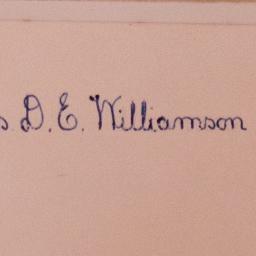 D. E. Williamson